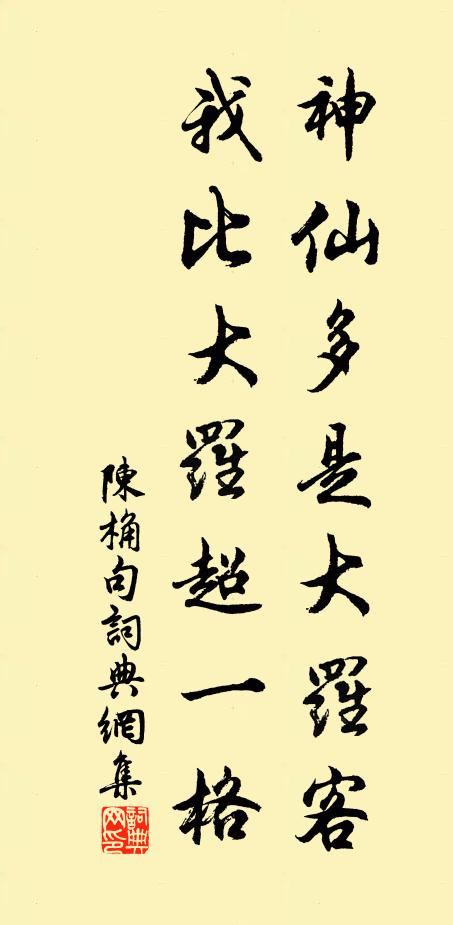 神仙多是大羅客
我比大羅超一格
陳桷句詞典網集
詞典网印